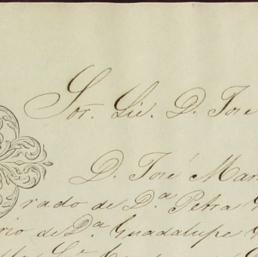 Sor. Lic. D. José
D. José Man
rado de D.a Petra
rio de D.a Guadalupe